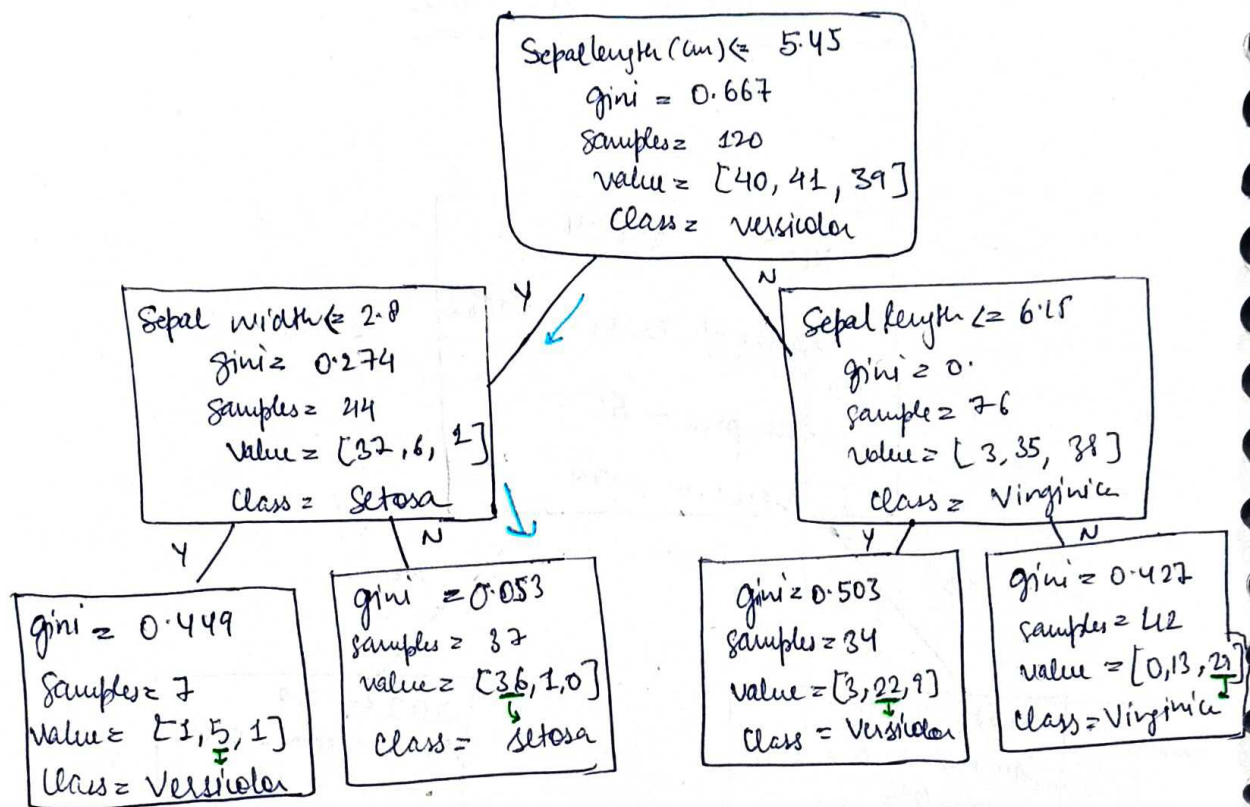 Sepal length (cm) <= 5.45
gini = 0.667
samples = 120
value = [40, 41, 39]
class = versicolor
Y
N
Sepal width <= 2.8
gini = 0.274
samples = 44
value = [37, 6, 1]
class = Setosa
Sepal length <= 6.15
gini = 0.
sample = 76
value = [3, 35, 38]
class = Virginica
Y
N
Y
N
gini = 0.449
samples = 7
value = [1, 5, 1]
class = Versicolor
gini = 0.053
samples = 37
value = [36, 1, 0]
class = setosa
gini = 0.503
samples = 34
value = [3, 22, 9]
class = Versicolor
gini = 0.427
samples = 42
value = [0, 13, 29]
class = Virginica